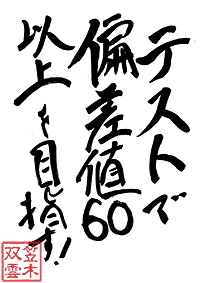 テストで
偏差値60
以上を目指す!
笠木
双雲